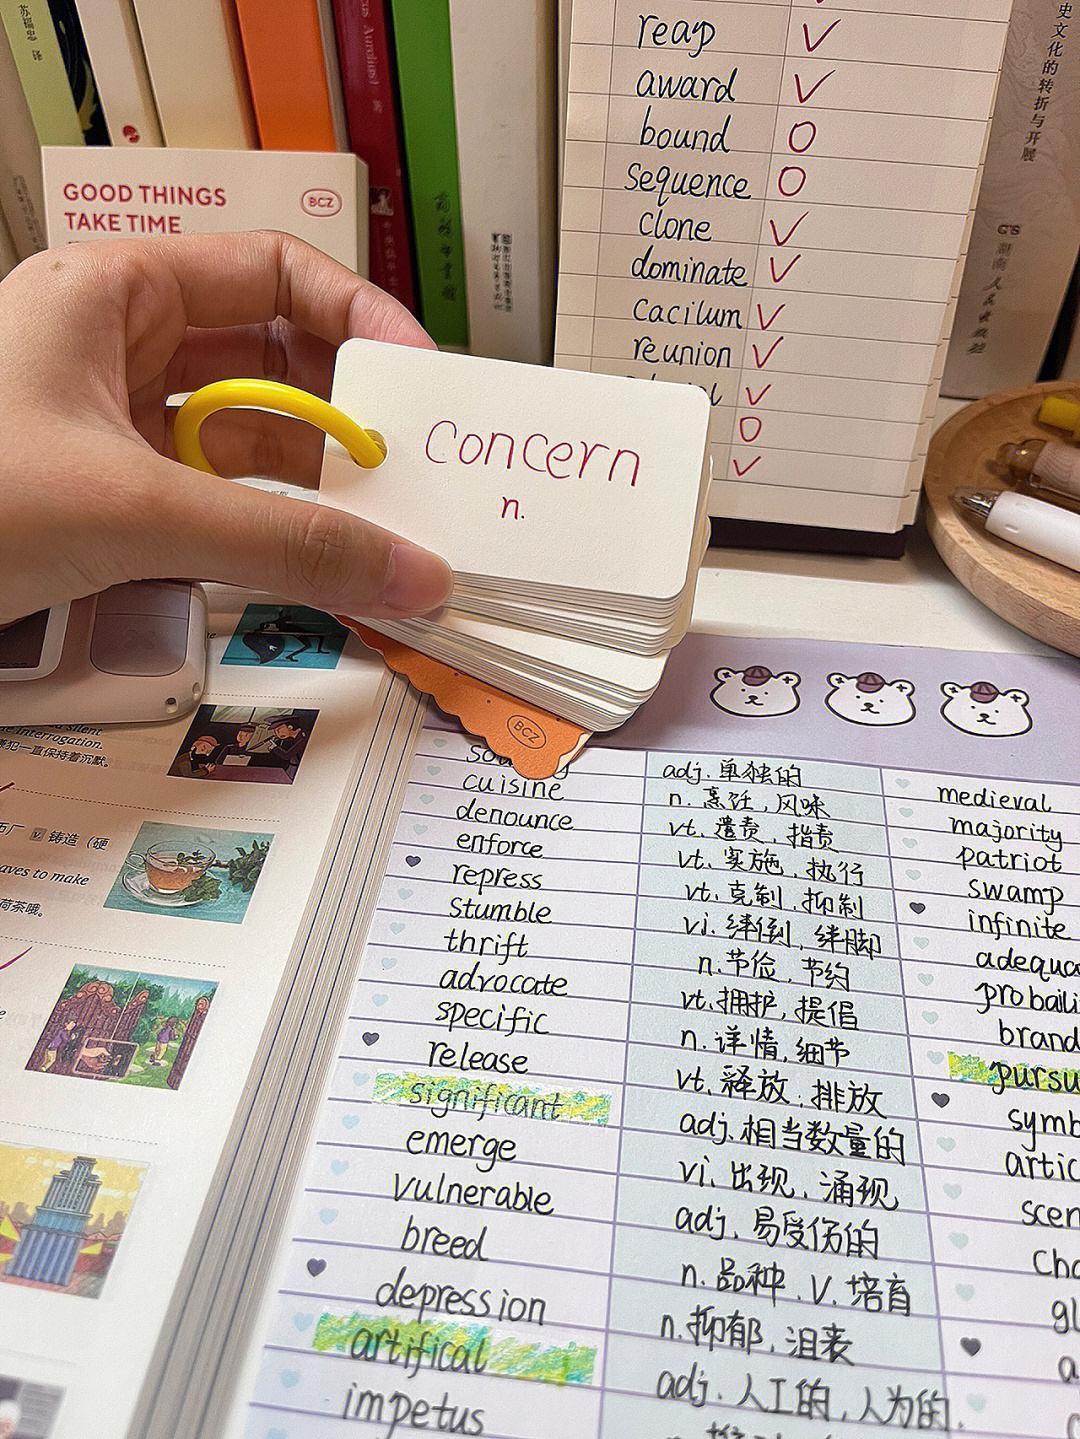 苏福忠 译
GOOD THINGS
TAKE TIME
BCZ
reap
award
bound
sequence
clone
dominate
cacilum
reunion
史文化的转折与开展
湖南人民出版社
concern
n.
BCZ
silent
interrogation.
嫌犯一直保持着沉默。
v. 铸造（硬
aves to make
荷茶哦。
adj. 单独的
cuisine n. 烹饪，风味
denounce vt. 谴责，指责
enforce vt. 实施，执行
repress vt. 克制，抑制
stumble vi. 绊倒，绊脚
thrift n. 节俭，节约
advocate vt. 拥护，提倡
specific n. 详情，细节
release vt. 释放，排放
significant adj. 相当数量的
emerge vi. 出现，涌现
vulnerable adj. 易受伤的
breed n. 品种，v. 培育
depression n. 抑郁，沮丧
artifical adj. 人工的，人为的.
impetus
medieval
majority
patriot
swamp
infinite
adequa
probaili
brand
pursu
symb
artic
scen
cho
gl
a